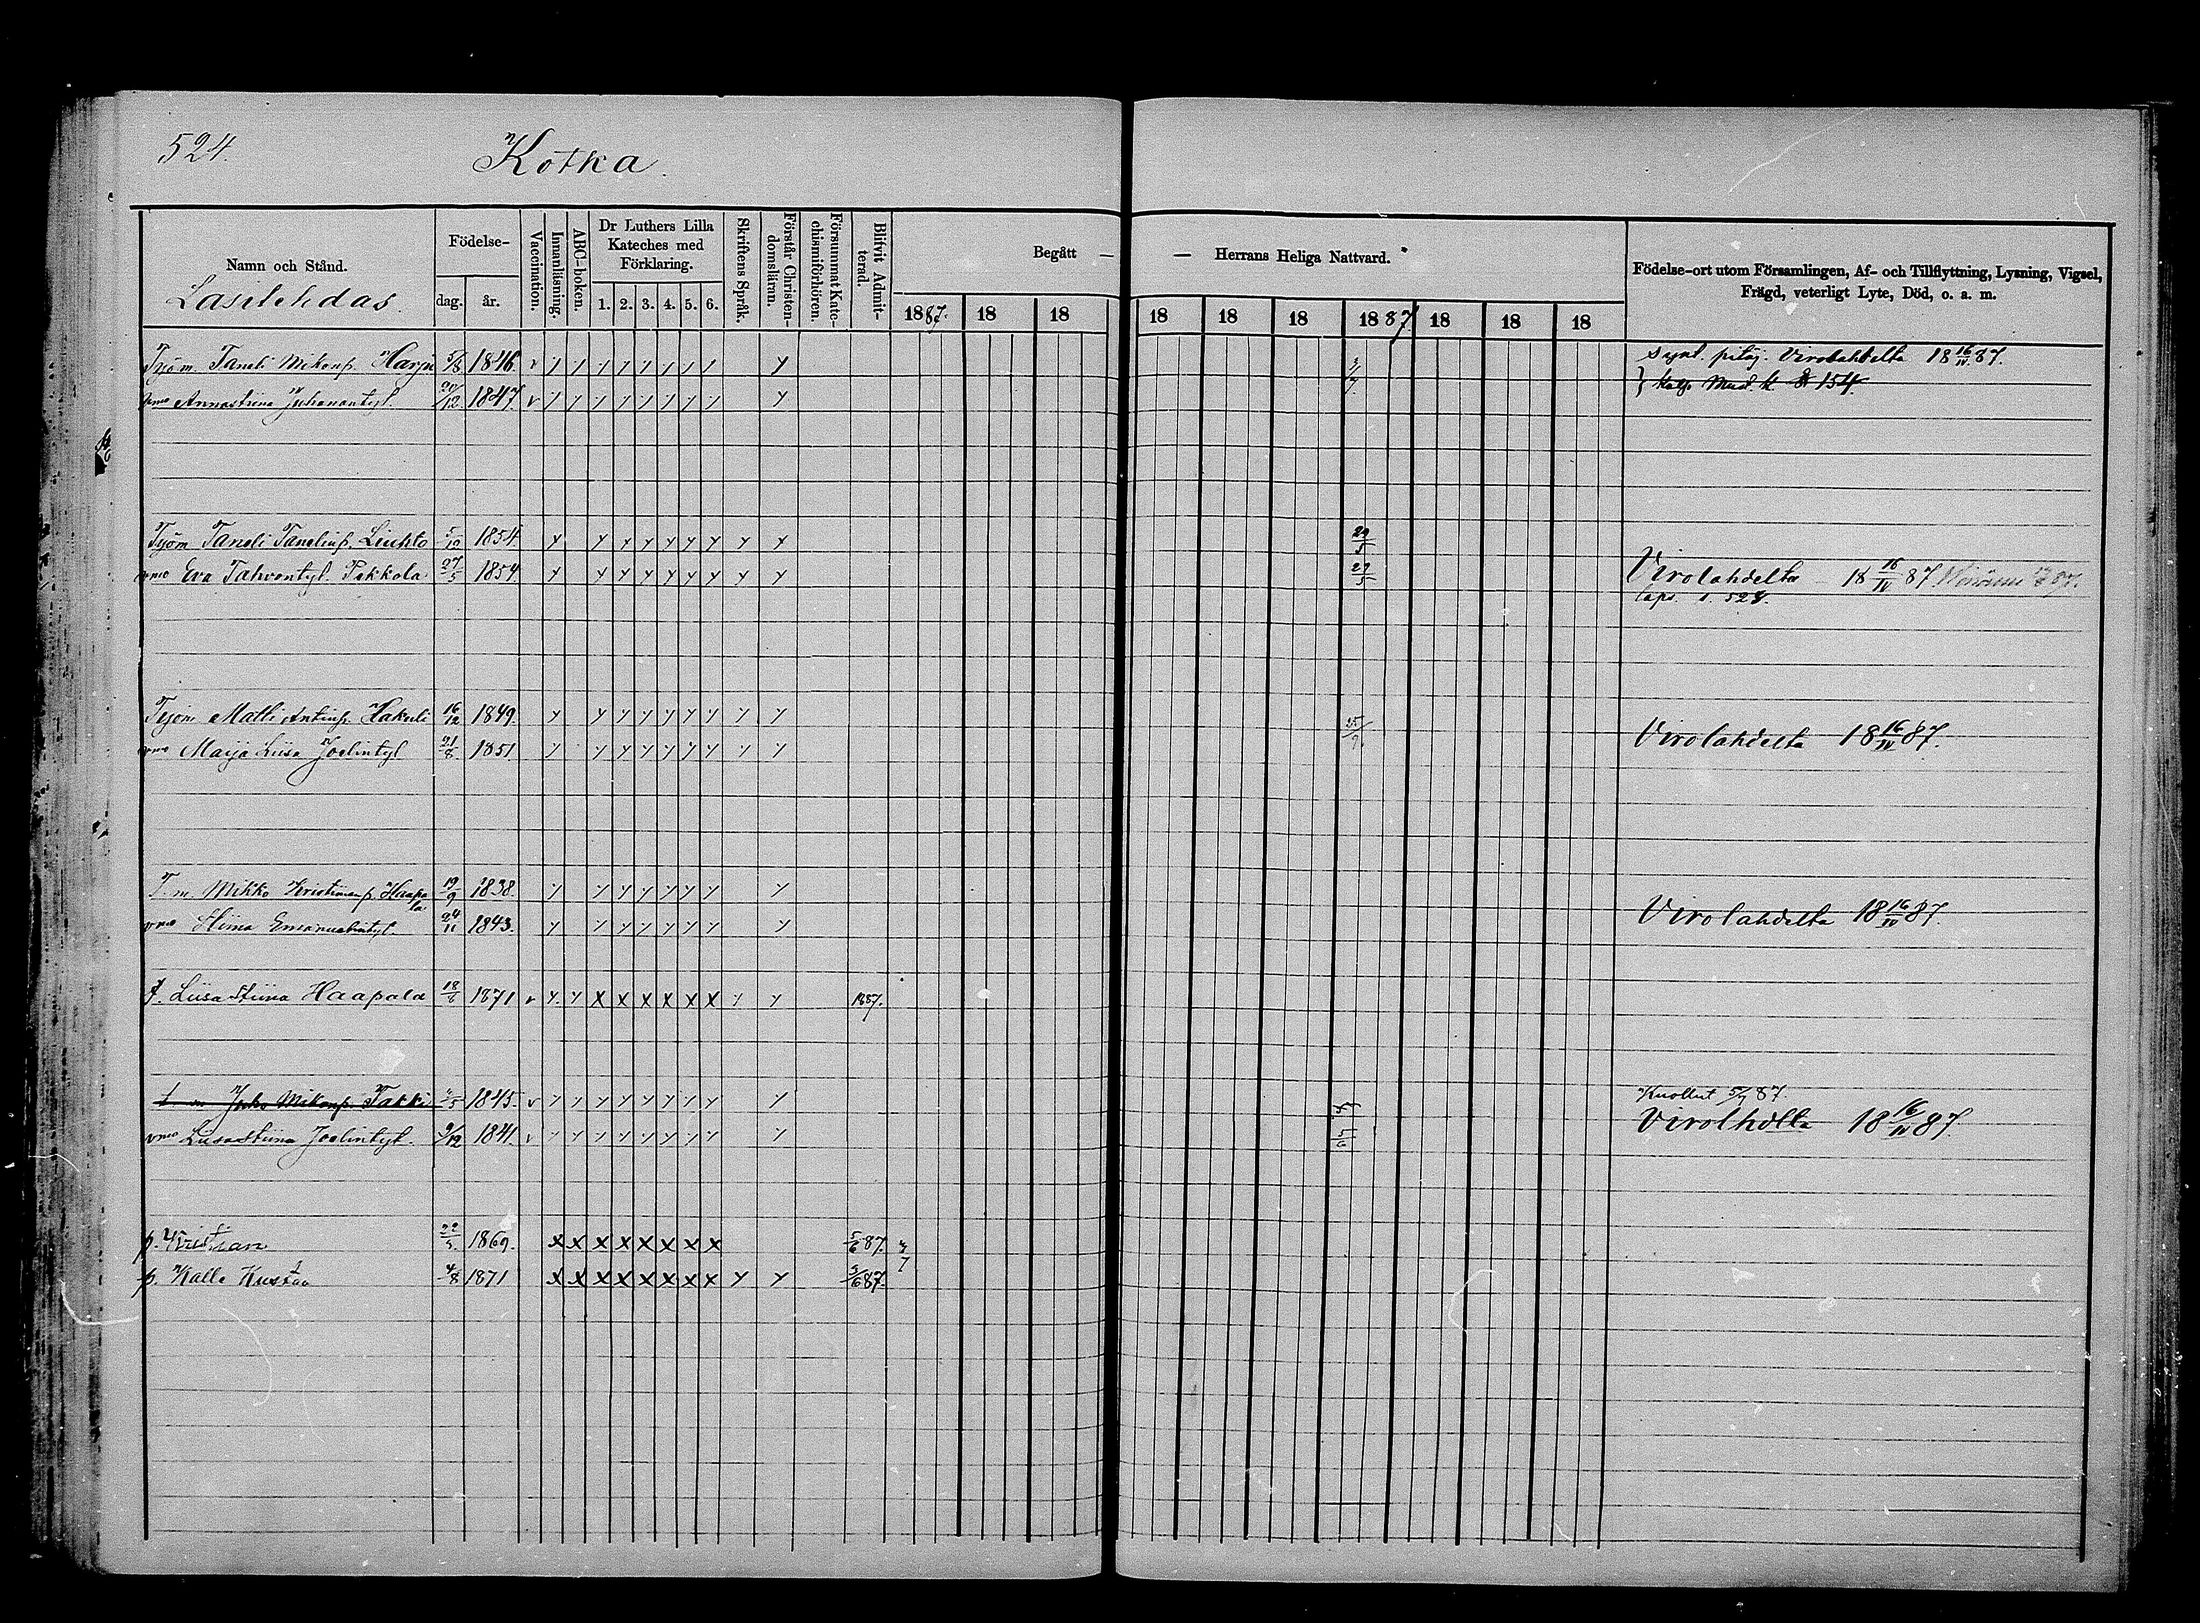 524.
Kotka.
Namn och Stånd.
Födelse-
dag.
år.
Vaccination.
Innanläsning.
ABC-boken.
Dr Luthers Lilla
Kateches med
Förklaring.
1. 2. 3. 4. 5. 6.
Skriftens Språk.
Förstår Christen-
domsläran.
Försummat Kate-
chismiförhören.
Blifvit Admit-
terad.
Begått — — Herrans Heliga Nattvard.
1887. 18 18 18 18 18 1887 18 18 18
Födelse-ort utom Församlingen, Af- och Tillflyttning, Lysning, Vigsel,
Frägd, veterligt Lyte, Död, o. a. m.
Lasitehdas.
Työm. Taneli Mikonp. Harju 5/8 1846. v y y y y y y y y y 3/7 Virolahdelta 18 16/IV 87.
vmo Annastiina Juhanantyt. 20/12 1847. v y y y y y y y y y 154.
Työm Taneli Tanelinp. Liuhto 5/12 1854. y y y y y y y y y 29/5
vmo Eva Tahvontyt. Pakkola 27/5 1854. y y y y y y y y y 29/5 Virolahdelta 18 16/IV 87
Työm Matti Antinp. Hakuli 16/12 1849. y y y y y y y y y 25/9
vmo Marja Liisa Joelintyt 21/8 1851. y y y y y y y y y Virolahdelta 18 16/IV 87.
T. m. Mikko Kristianp. Haapala 19/9 1838. y y y y y y y y
vmo Stiina Emanuelintyt. 24/11 1843. y y y y y y y y Virolahdelta 18 16/IV 87.
Liisa Stiina Haapala 18/6 1871 v y y x x x x x x y y 1887.
Juho Mikonp. Takki 1845. v y y y y y y y y y Kuollut 5/7 87.
vmo Liisa Stiina Joelintyt. 9/12 1841. v y y y y y y y y y Virolhdlta 18 16/IV 87.
p. Kristian 22/5. 1869. x x x x x x x x 5/6 87.
p. Kalle Kustaa 4/8 1871 x x x x x x x x y y 5/6 87.